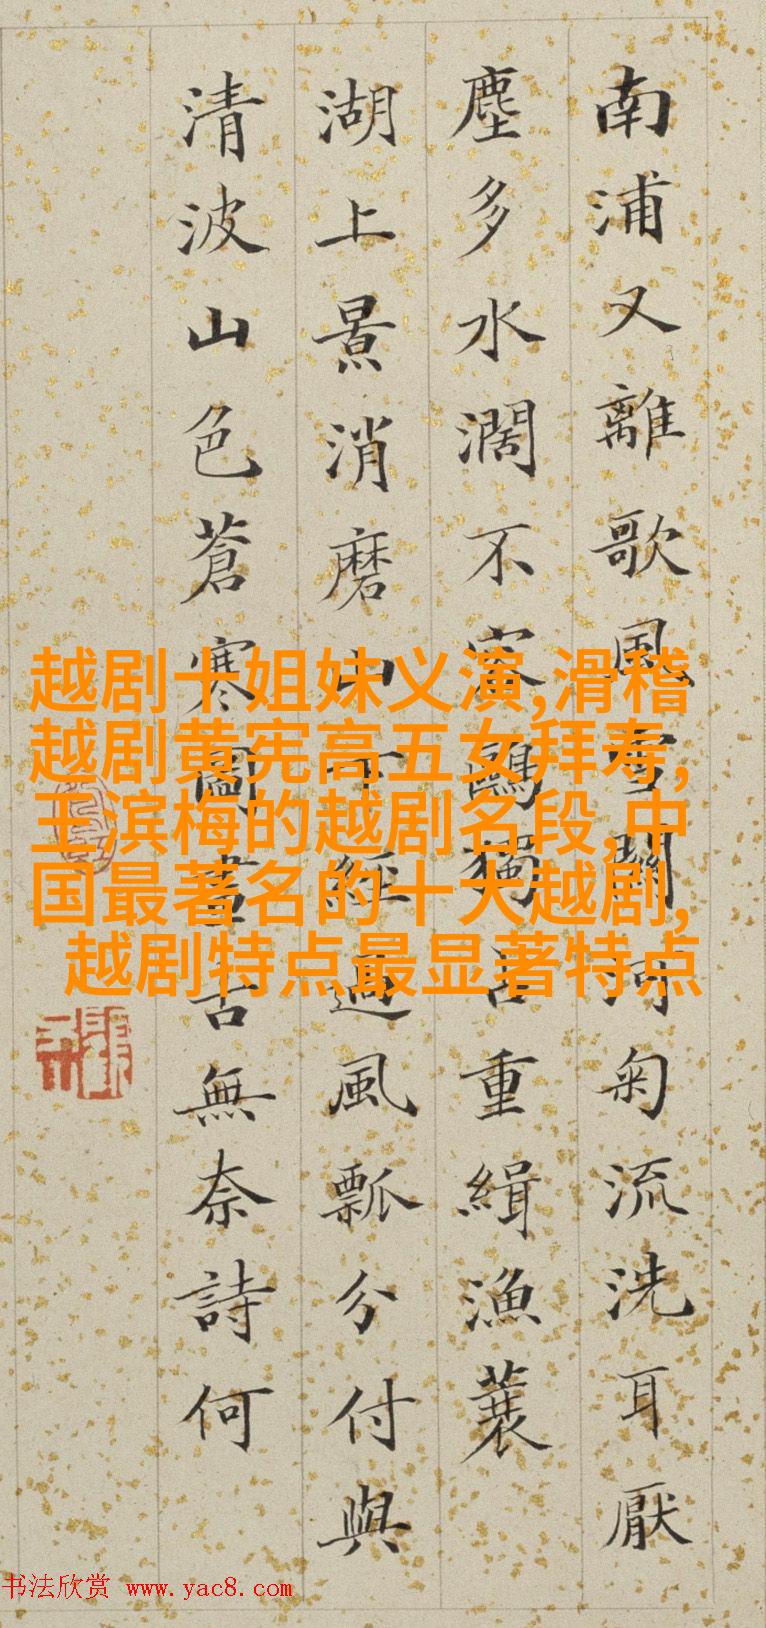 南浦又離歌風雪關河匊流洗耳厭
塵多水濶不容鷗獨占重緝漁蓑
湖上景消磨山下經過風瓢分付與
清波山色蒼寒圖畫古無奈詩何
越剧十姐妹义演,滑稽
越剧黄宪高五女拜寿,
王滨梅的越剧名段,中
国最著名的十大越剧,
越剧特点最显著特点
书法欣赏 www.yac8.com